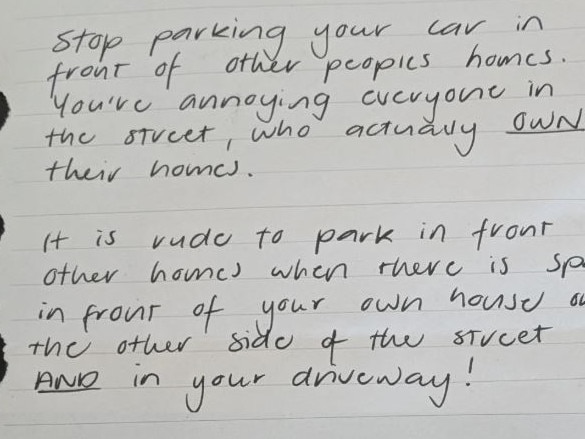 Stop parking your car in
front of other peoples homes.
You're annoying everyone in
the street, who actually OWN
their homes.
It is rude to park in front
other homes when there is
in front of your own house
the other side of the street
AND in your driveway!